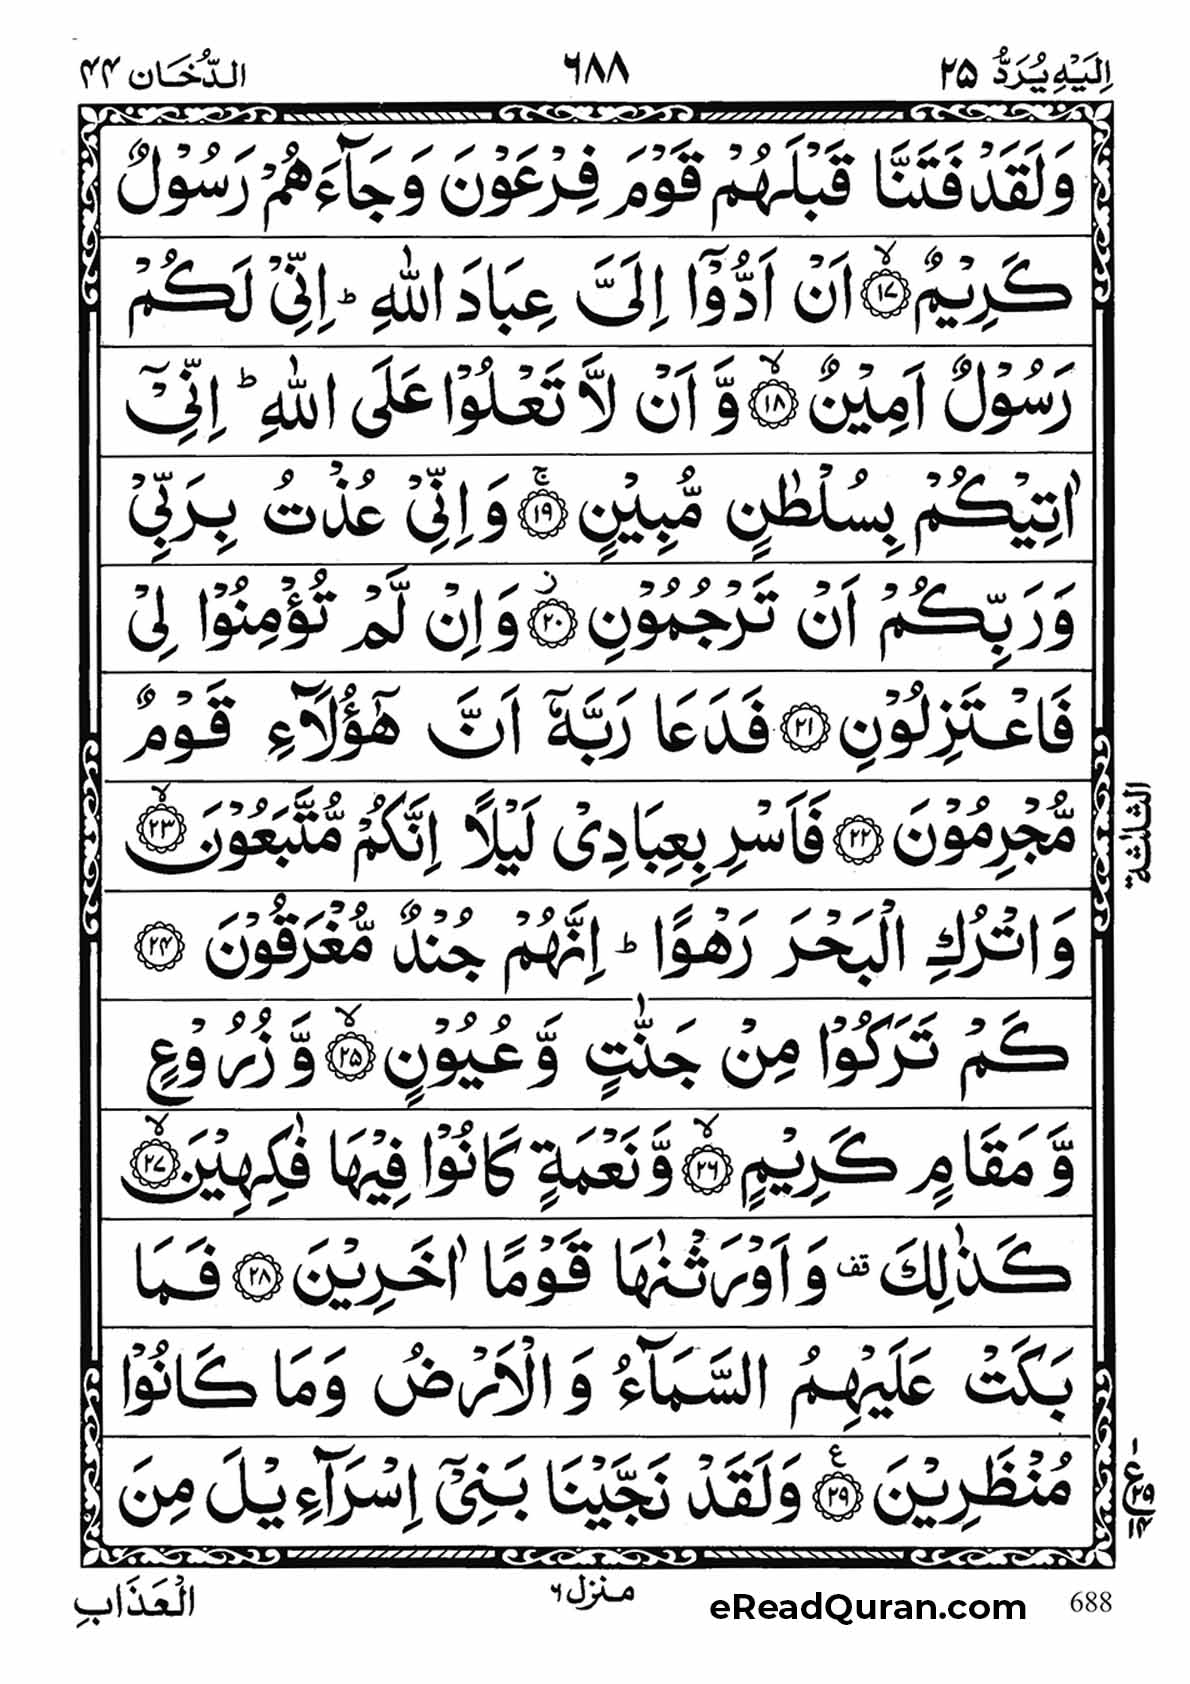 اِلَيْهِ يُرَدُّ ٢٥ ٦٨٨ الدُّخَان ٤٤
وَلَقَدْ فَتَنَّا قَبْلَهُمْ قَوْمَ فِرْعَوْنَ وَجَآءَهُمْ رَسُوْلٌ
كَرِيْمٌ ۙ﴿١٧﴾ اَنْ اَدُّوْۤا اِلَىَّ عِبَادَ اللّٰهِ ؕ اِنِّىْ لَكُمْ
رَسُوْلٌ اَمِيْنٌ ۙ﴿١٨﴾ وَّاَنْ لَّا تَعْلُوْا عَلَى اللّٰهِ ؕ اِنِّىْۤ
اٰتِيْكُمْ بِسُلْطٰنٍ مُّبِيْنٍ ۚ﴿١٩﴾ وَاِنِّىْ عُذْتُ بِرَبِّىْ
وَرَبِّكُمْ اَنْ تَرْجُمُوْنِ ؗ﴿٢٠﴾ وَاِنْ لَّمْ تُؤْمِنُوْا لِىْ
فَاعْتَزِلُوْنِ ﴿٢١﴾ فَدَعَا رَبَّهٗۤ اَنَّ هٰٓؤُلَآءِ قَوْمٌ
مُّجْرِمُوْنَ ﴿٢٢﴾ فَاَسْرِ بِعِبَادِىْ لَيْلًا اِنَّكُمْ مُّتَّبَعُوْنَ ۙ﴿٢٣﴾
وَاتْرُكِ الْبَحْرَ رَهْوًا ؕ اِنَّهُمْ جُنْدٌ مُّغْرَقُوْنَ ﴿٢٤﴾
كَمْ تَرَكُوْا مِنْ جَنّٰتٍ وَّعُيُوْنٍ ۙ﴿٢٥﴾ وَّزُرُوْعٍ
وَّمَقَامٍ كَرِيْمٍ ۙ﴿٢٦﴾ وَّنَعْمَةٍ كَانُوْا فِيْهَا فٰكِهِيْنَ ۙ﴿٢٧﴾
كَذٰلِكَ قف وَاَوْرَثْنٰهَا قَوْمًا اٰخَرِيْنَ ﴿٢٨﴾ فَمَا
بَكَتْ عَلَيْهِمُ السَّمَآءُ وَالْاَرْضُ وَمَا كَانُوْا
مُنْظَرِيْنَ ﴿٢٩﴾ ع وَلَقَدْ نَجَّيْنَا بَنِىْۤ اِسْرَآءِيْلَ مِنَ
الثلثة
ع ٢٩ ١٤
الْعَذَابِ منزل ٦ eReadQuran.com 688